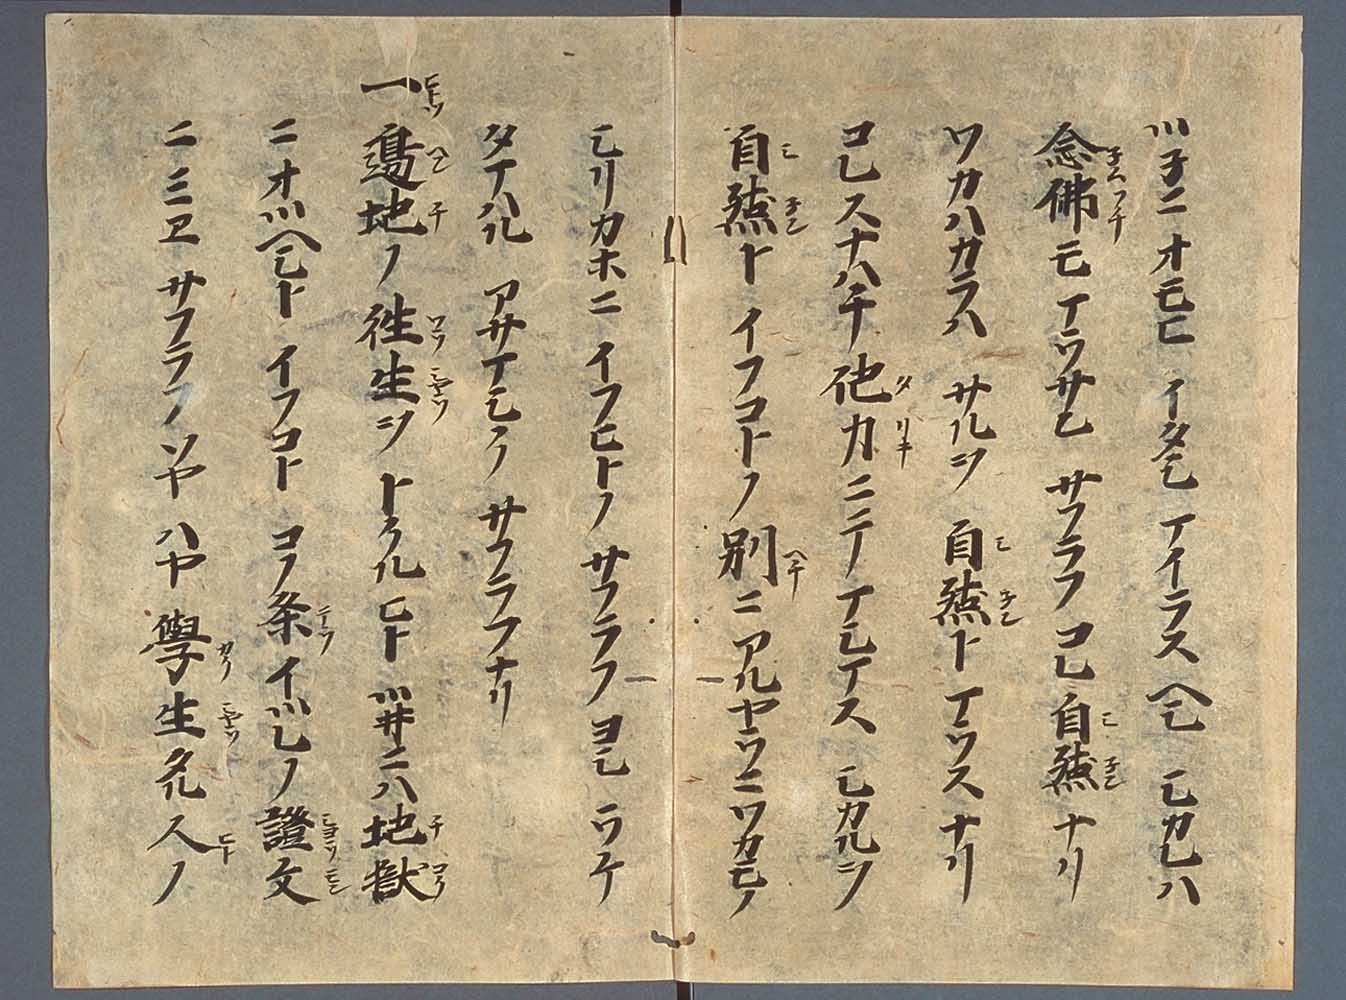 ツネニオモヒイタシマイラスヘシシカレハ
念佛モマウサレサフラフコレ自然ナリ
ワカハカラハサルヲ自然トマウスナリ
コレスナハチ他力ニテマシマスシカルヲ
自然トイフコトノ別ニアルヤウニワレモノ
シリカホニイフヒトノサフラフヨシウケ
タマハルアサマシクサフラフナリ
一邊地ノ往生ヲトクルヒトツヰニハ地獄
ニオツヘシトイフコトコノ条イツレノ證文
ニミヱサフラフソヤ學生タツル人ノ